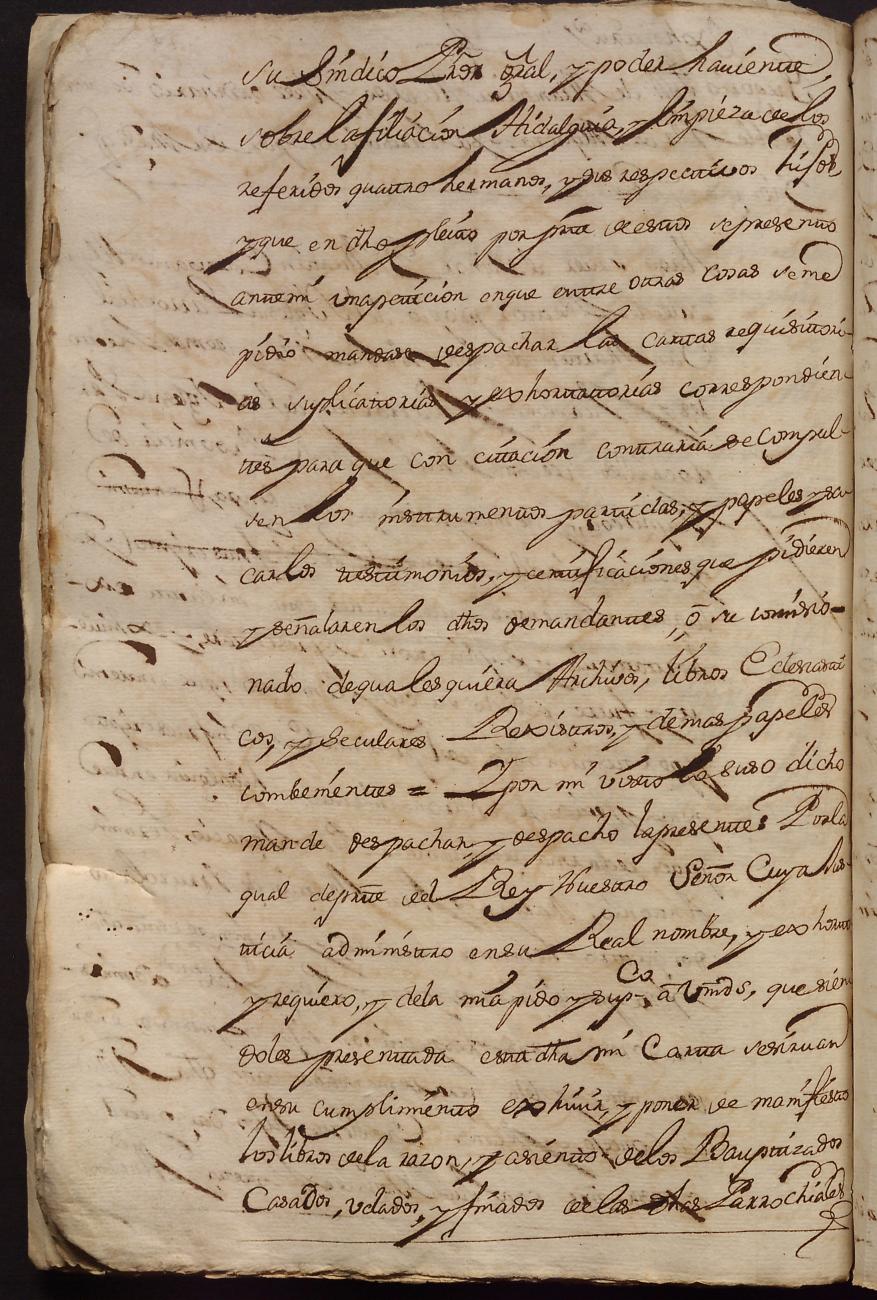 su Sindico Pror. gral, y poder haviente,
sobre la filiación Hidalguia, y limpieza de los
referidos quattro hermanos, y sus respectivos hijos,
y que en dho pleito por pnte de estos se presento
ante mi una peticion en que entre otras cosas se me
pidio mandase despachar las cartas requisitori-
as suplicatorias y exhortatorias correspondien-
tes para que con citación contraria se compul-
sen los instrumentos partidas, y papeles y sa-
carlos testimonios, y certificaciones que pidieren
y señalaren los dhos demandantes, ó su comisio-
nado de qualesquiera Archivos, libros Eclesiasti
cos, y seculares Rexistros, y demas papeles
combenientes = Y por mi visto lo suso dicho
mande despachar, y despacho la presente Por la
qual de pnte del Rey Nuestro Señor Cuya Jus-
ticia administro en su Real nombre, y exhorto
y requiero, y de la mia pido y supco á Vmds, que sien
doles presentada esta dha mi Carta se sirvan
en su cumplimiento exhivir, y poner de manifiesto
los libros de la razon, y asiento de los Bauptizados
Casados, velados, y finados de las dhas Parrochiales